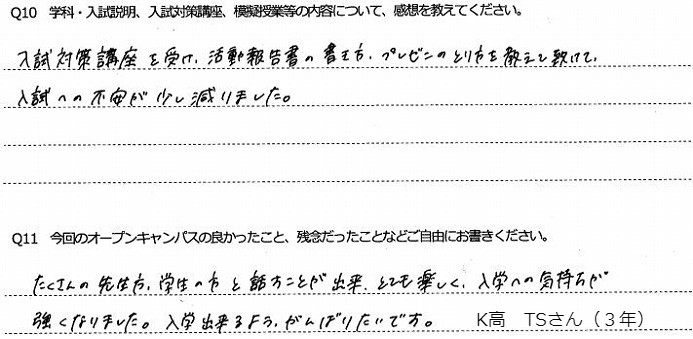 Q10 学科・入試説明、入試対策講座、模擬授業等の内容について、感想を教えてください。
入試対策講座を受け、活動報告書の書き方、プレゼンのとり方を教えて頂けて、
入試への不安が少し減りました。
Q11 今回のオープンキャンパスの良かったこと、残念だったことなどご自由にお書きください。
たくさんの先生方、学生の方と話すことが出来、とても楽しく、入学への気持ちが
強くなりました。入学出来るよう、がんばりたいです。 K高 TSさん（３年）